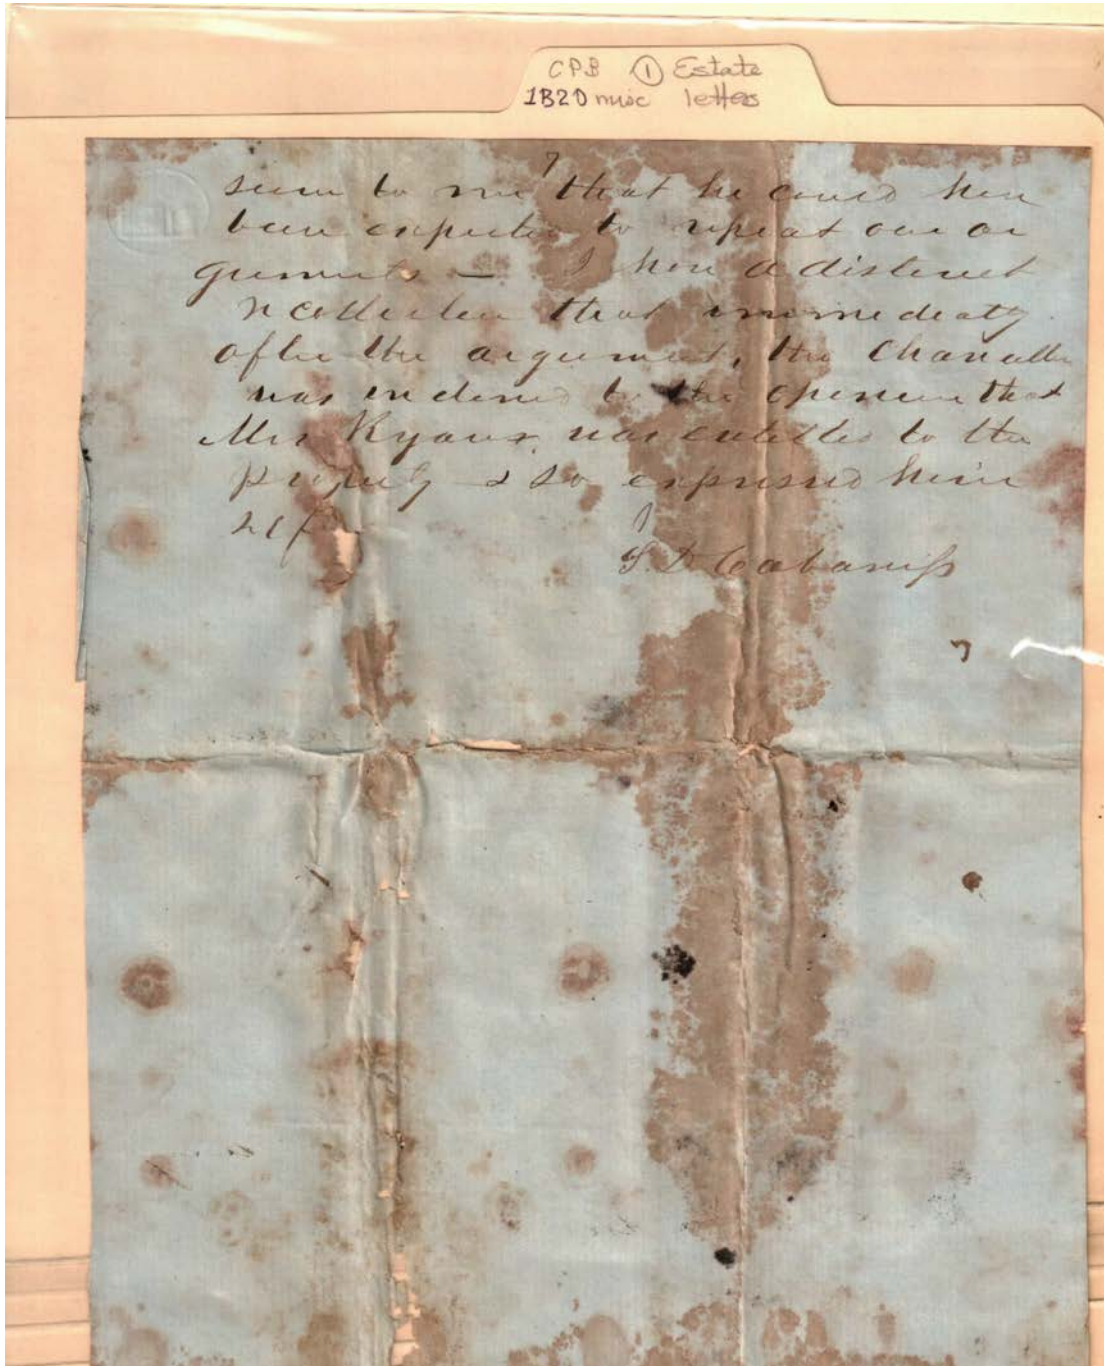 CPB ① Estate
1B20 misc letters
7
seem to me that he could have
been expected to repeat our ar
guments — I have a distinct
recollection that immediatly
after the argument, the Chancellor
was inclined to the opinion that
Mrs Ryaux was entitled to the
property & so expressed him
self
S. D. Cabaniss
7